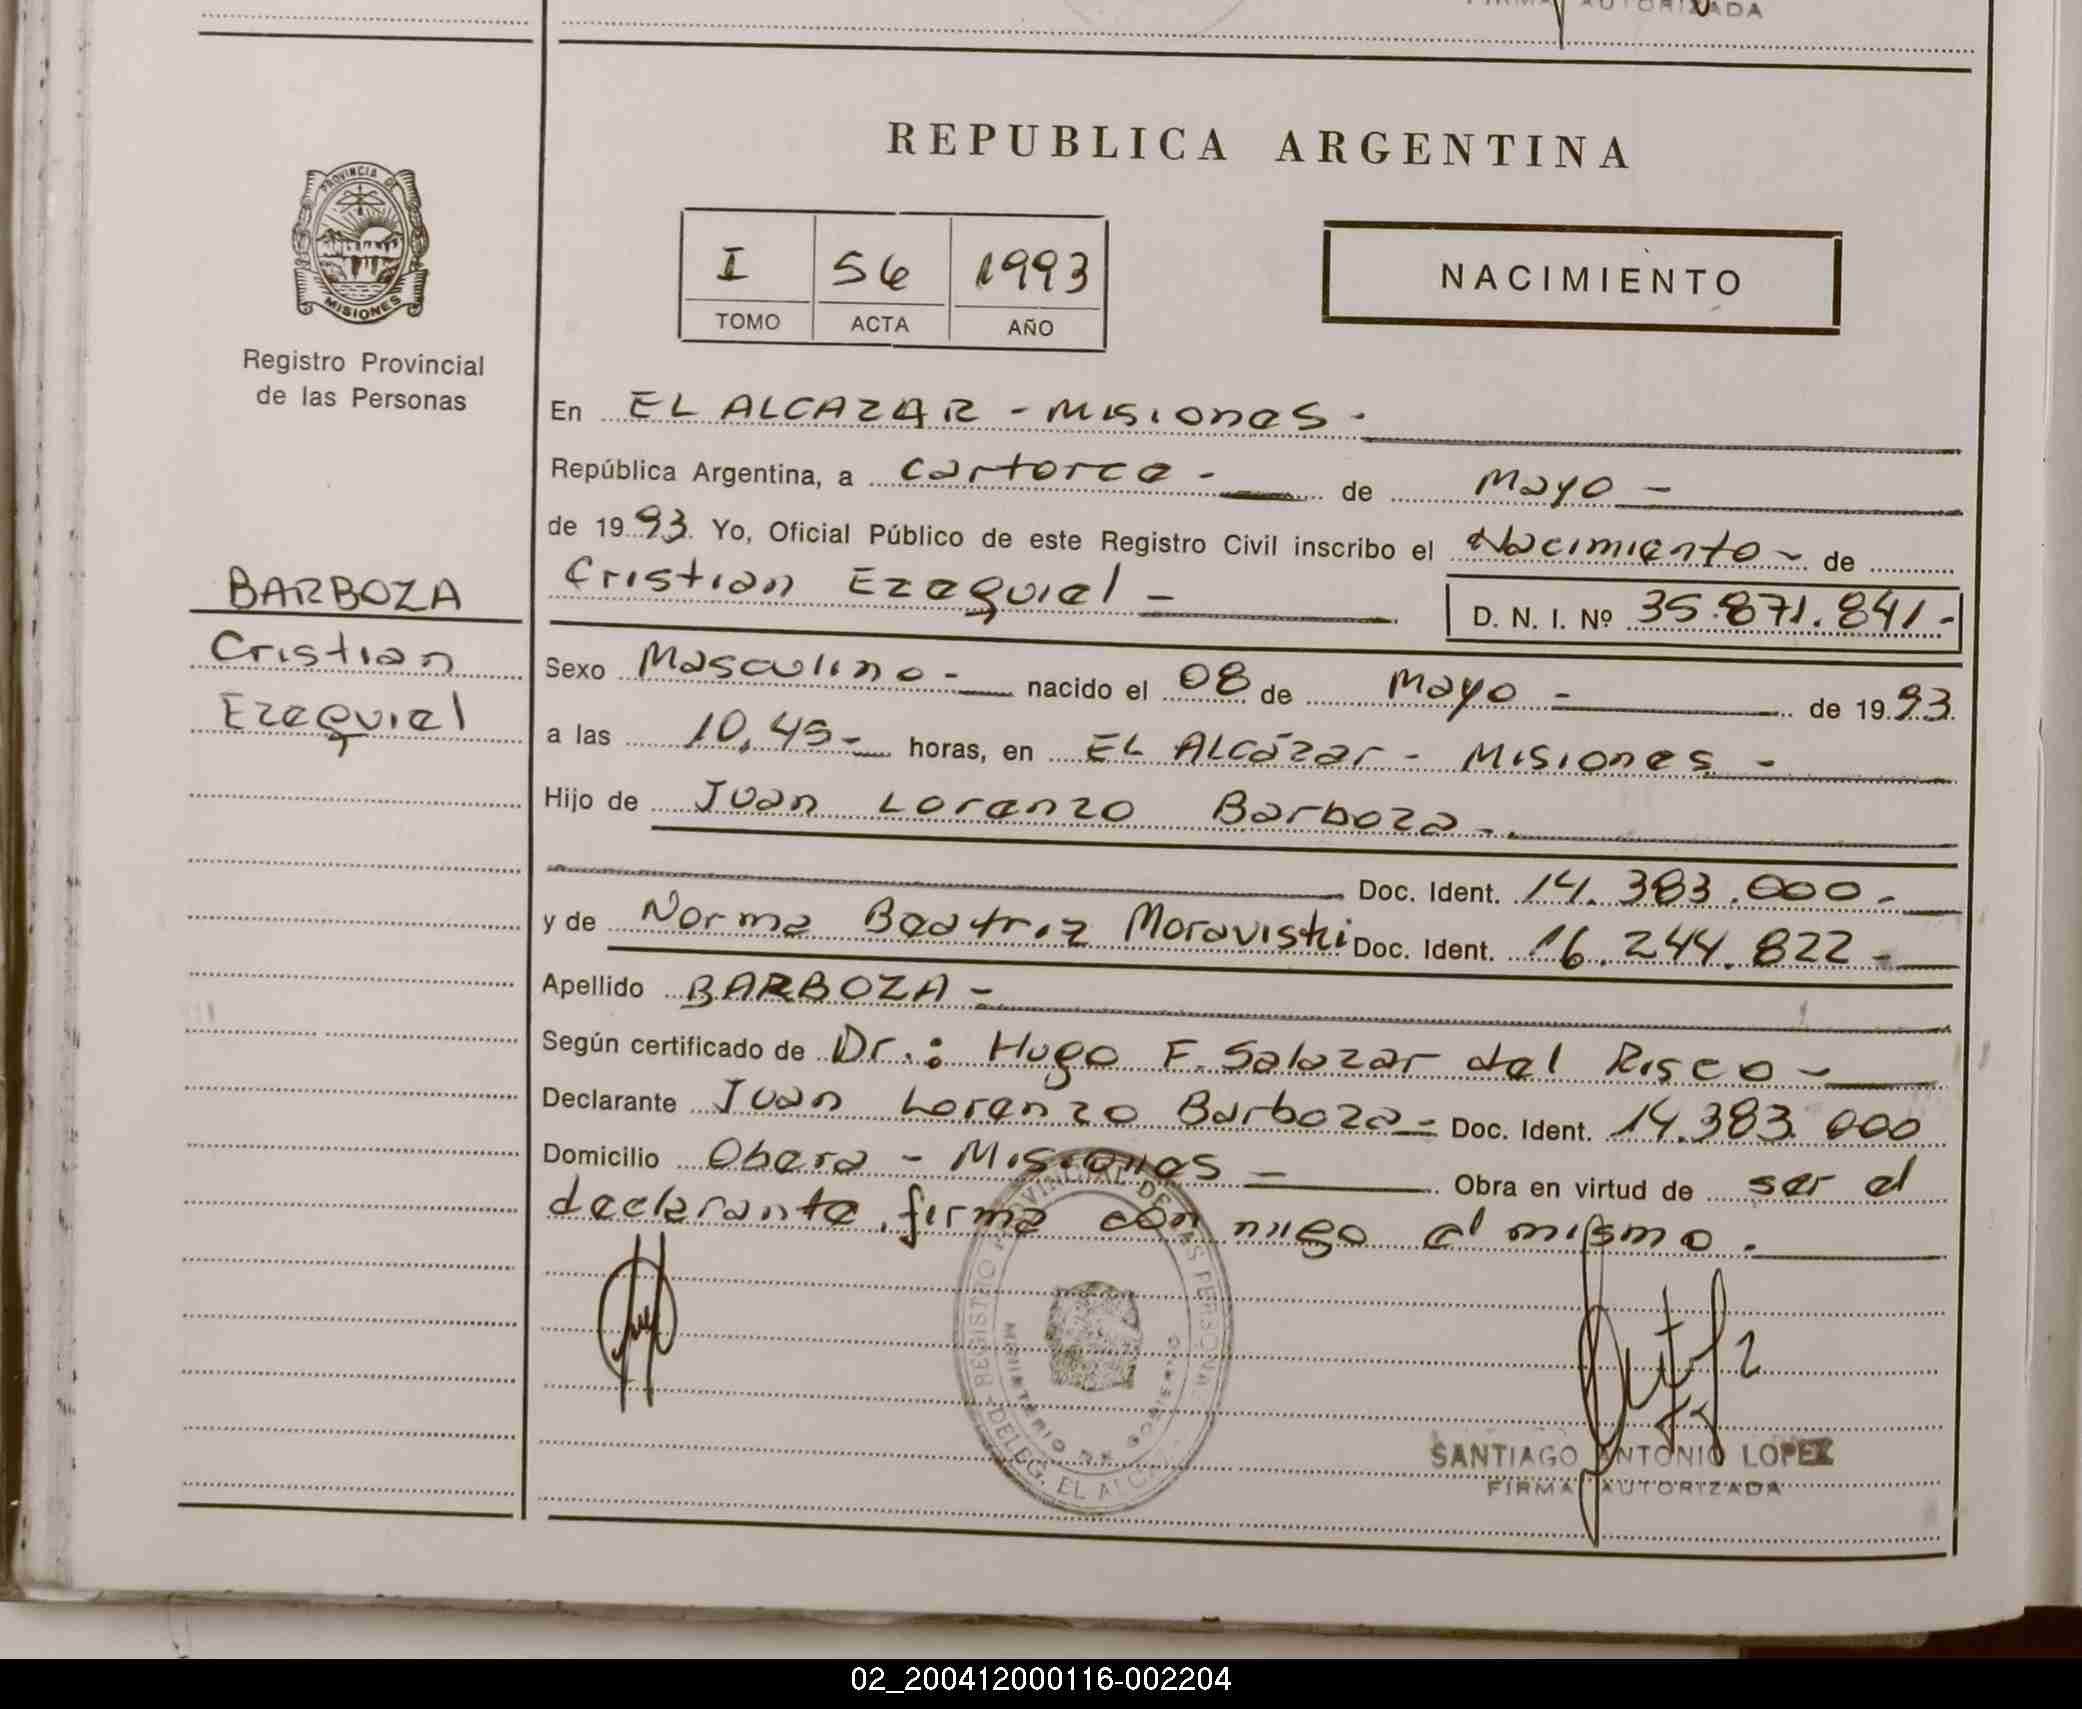 FIRMA AUTORIZADA
REPUBLICA ARGENTINA
PROVINCIA DE
MISIONES
Registro Provincial
de las Personas
I 56 1993
TOMO ACTA AÑO
NACIMIENTO
En EL ALCAZAR - Misiones -
República Argentina, a Cartorce - de Mayo -
de 1993. Yo, Oficial Público de este Registro Civil inscribo el Nacimiento - de
Cristian Ezequiel - D. N. I. Nº 35.871.841-
BARBOZA
Cristian
Ezequiel
Sexo Masculino - nacido el 08 de Mayo - de 1993.
a las 10,45- horas, en EL ALCázar - Misiones -
Hijo de Juan Lorenzo Barboza -.
Doc. Ident. 14.383.000-
y de Norma Beatriz Moraviski Doc. Ident. 16.244.822-
Apellido BARBOZA -
Según certificado de Dr.: Hugo F. Salazar del Risco -
Declarante Juan Lorenzo Barboza - Doc. Ident. 14.383.000
Domicilio Obera - Misiones - Obra en virtud de ser el
declarante, firma con migo el mismo.
REGISTRO PROVINCIAL DE LAS PERSONAS
MINISTERIO DE GOBIERNO
DELEG. EL ALCAZAR
SANTIAGO ANTONIO LOPEZ
FIRMA AUTORIZADA
02_200412000116-002204